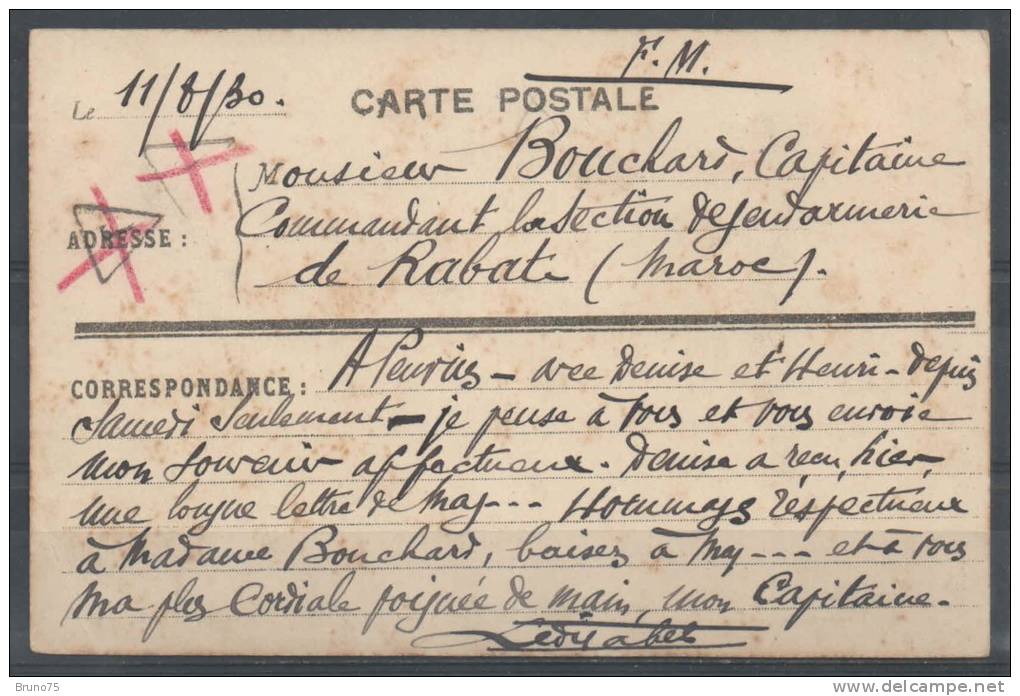 F.M.
Le 11/8/30.
CARTE POSTALE
Monsieur Bouchard, Capitaine
Commandant la Section de Gendarmerie
ADRESSE :
de Rabat (Maroc).
CORRESPONDANCE : A – avec Denise et Henri – depuis
Samedi seulement – je pense à vous et vous envoie
mon souvenir affectueux. Denise a reçu, hier,
une longue lettre de May--- Hommages respectueux
à Madame Bouchard, baisers à May---- et à vous
ma plus cordiale poignée de main, mon Capitaine.
Bruno75
www.delcampe.net